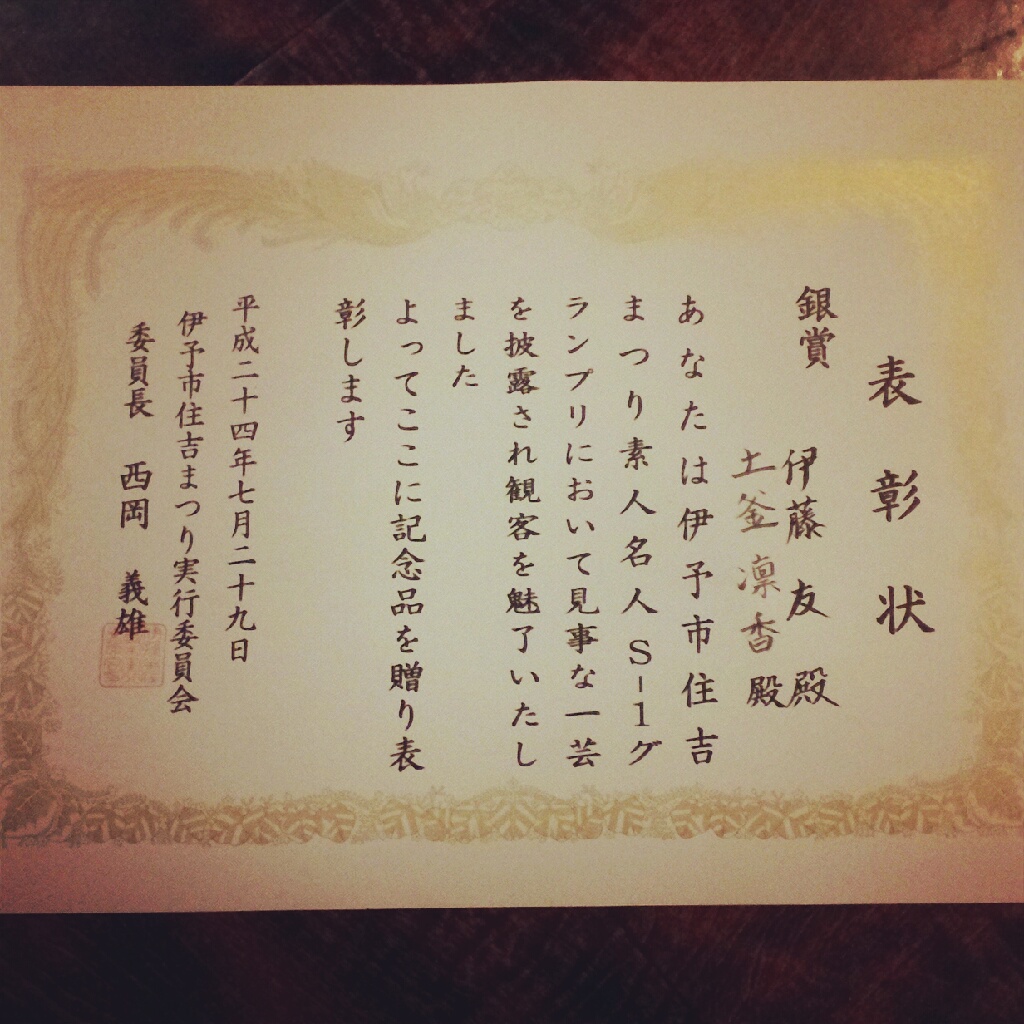 表彰状
銀賞
伊藤 友 殿
土釜 凛香 殿
あなたは伊予市住吉
まつり素人名人S-1グ
ランプリにおいて見事な一芸
を披露され観客を魅了いたし
ました
よってここに記念品を贈り表
彰します
平成二十四年七月二十九日
伊予市住吉まつり実行委員会
委員長 西岡 義雄